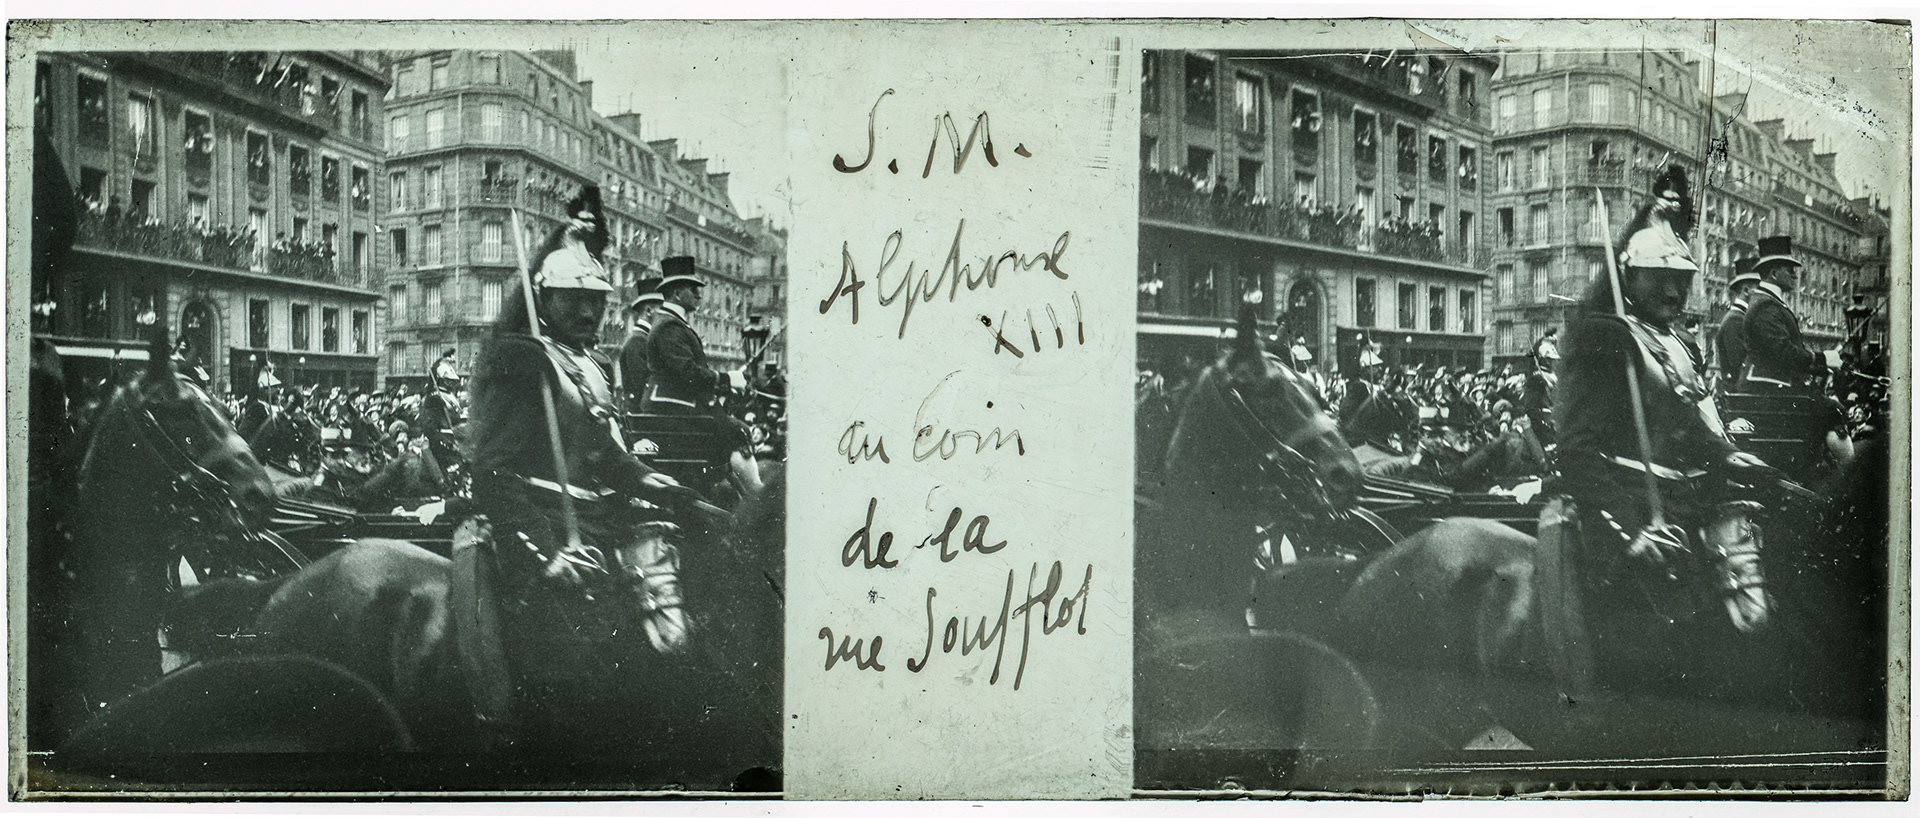 S. M.
Alphonse
XIII
au coin
de la
rue Soufflot